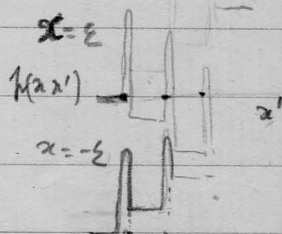 x = ε
p(x x')
x'
x = -ε